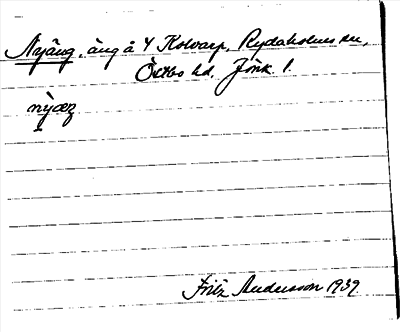 Nyäng, äng å Y Kolvarp, Rydaholms sn,
Östbo hd. Jönk. l.
nỳæŋ
Fritz Andersson 1939.